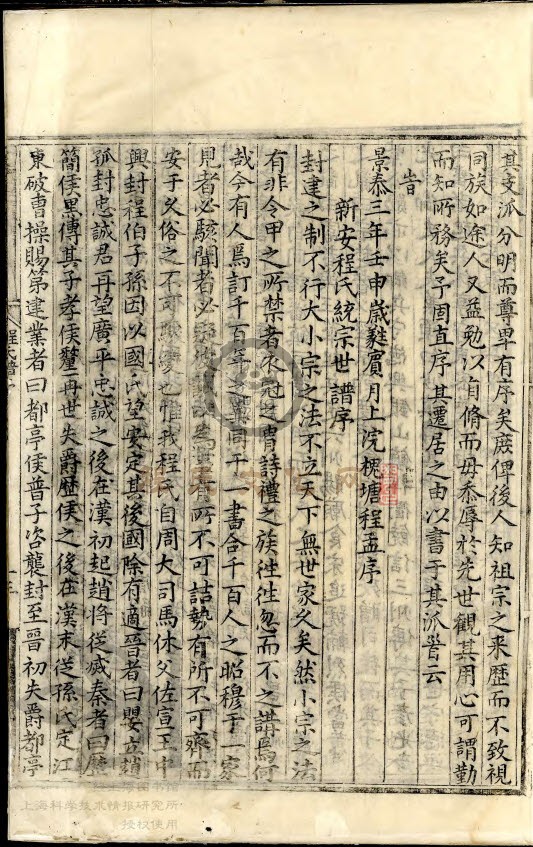 其支派分明而尊卑有序矣庶俾後人知祖宗之来歷而不致視
同族如途人又益勉以自脩而毋忝辱於先世觀其用心可謂勤
而知所務矣予固直序其遷居之由以書于其派首云
旹
景泰三年壬申嵗蕤賓月上浣槐塘程孟序
新安程氏統宗世譜序
封建之制不行大小宗之法不立天下無世家久矣然小宗之法
有非令甲之所禁者衣冠之胄詩禮之族徃徃忽而不之講焉何
哉今有人焉訂千百年之異同于一書合千百人之昭穆于一家
見者必駭聞者必 所不可詰勢有所不可齊而
安于久俗之不可 變也惟我程氏自周大司馬休父佐宣王中
興封程伯子孫因以國氏望安定其後國除有適晉者曰嬰立趙
孤封忠誠君再望廣平忠誠之後在漢初起趙将從滅秦者曰歷
簡侯黒傳其子孝侯釐再世失爵歴侯之後在漢末從孫氏定江
東破曹操賜第建業者曰都亭侯普子咨襲封至晉初失爵都亭
程氏譜序
三
上海科学技术情报研究所
授权使用